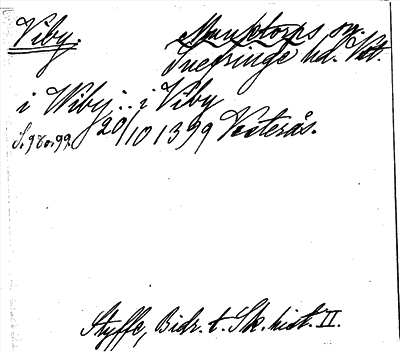 Viby. Munktorps sn.
Snefringe hd. Vstm.
i Wiby.. i Viby
S. 980.99. 20/10 1399 Vesterås.
Styffe, Bidr. t. Sk. hist. II.